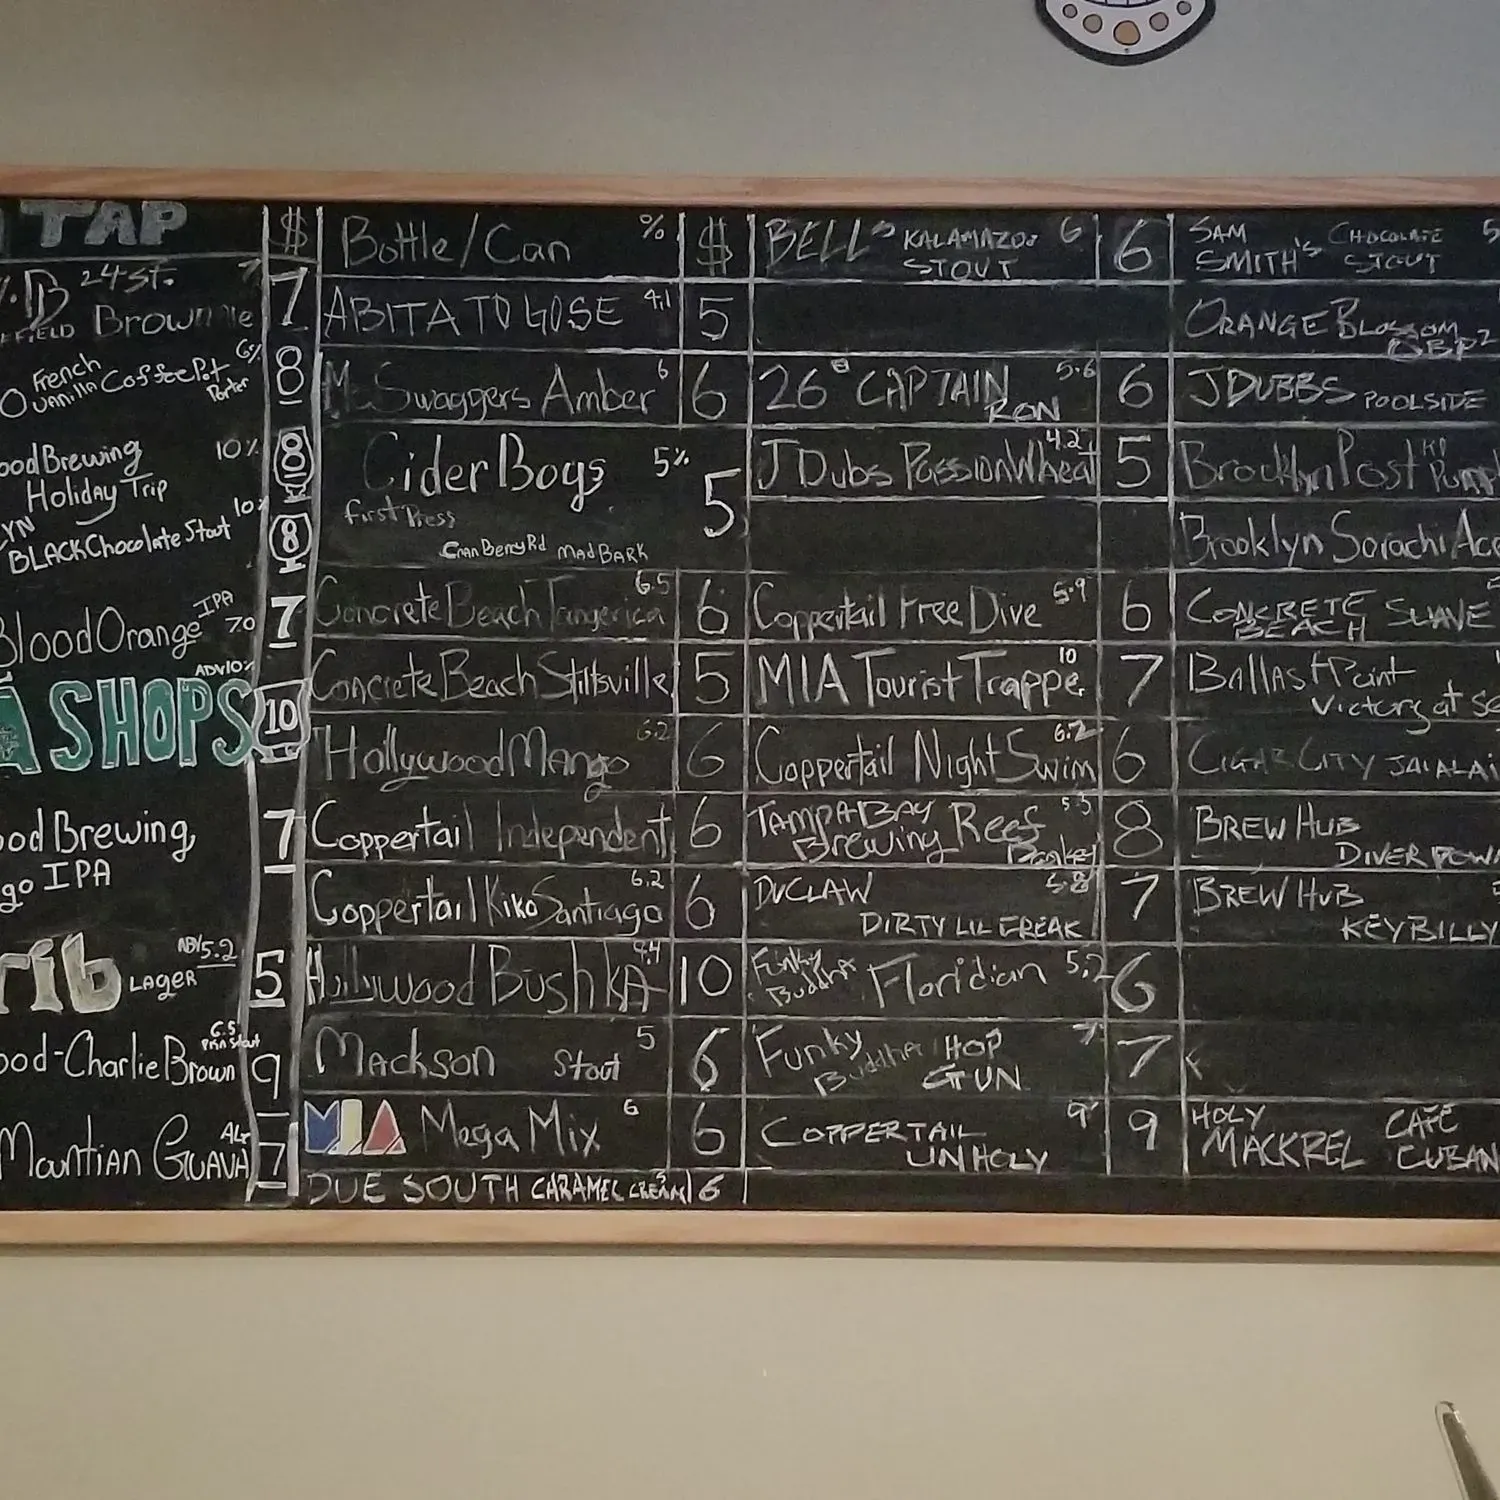 TAP $
24 ST. 7
Brownie 7
French
Vanilla CoffeePot 6% 8
Porter
Brewing 10% 8
Holiday Trip
BLACK Chocolate Stout 10% 8
Blood Orange IPA 7.0 7
SHOPS 10
Brewing 7
IPA
LAGER 5.2 5
Charlie Brown 6.5 9
Mountian GUAVA 7
Bottle/Can % $
ABITA TO GOSE 4.1 5
McSwaggers Amber 6 6
Cider Boys 5% 5
first Press
CranBerryRd MadBARK
Concrete Beach Tangerica 6.5 6
Concrete Beach Stiltsville 5
Hollywood Mango 6.2 6
Coppertail Independent 6
Coppertail Kiko Santiago 6.2 6
Hollywood BushkA 9.4 10
Mackson Stout 5 6
MIA Mega Mix 6 6
DUE SOUTH CARAMEL CREAM 6
BELL'S KALAMAZOO 6 6
STOUT
26° CAPTAIN 5.6 6
RON
J Dubs PassionWheat 4.2 5
Coppertail Free Dive 5.9 6
MIA Tourist Trappe 10 7
Coppertail Night Swim 6.2 6
TAMPA BAY Reef 8
Brewing
DUCLAW 5.8 7
DIRTY LIL FREAK
Funky Floridian 5.2 6
Buddha
Funky HOP 7 7
Buddha GUN
COPPERTAIL 9 9
UNHOLY
SAM CHOCOLATE 5
SMITH'S STOUT
ORANGE BLOSSOM
OBP2
JDUBBS POOLSIDE
Brooklyn Post
Brooklyn Sorachi Ace
CONCRETE SUAVE
BEACH
BAllast Point
Victory at Se
CIGAR CITY JAI ALAI
BREW HUB
DIVER DOWN
BREW HUB
KEYBILLY
HOLY CAFE
MACKREL CUBAN